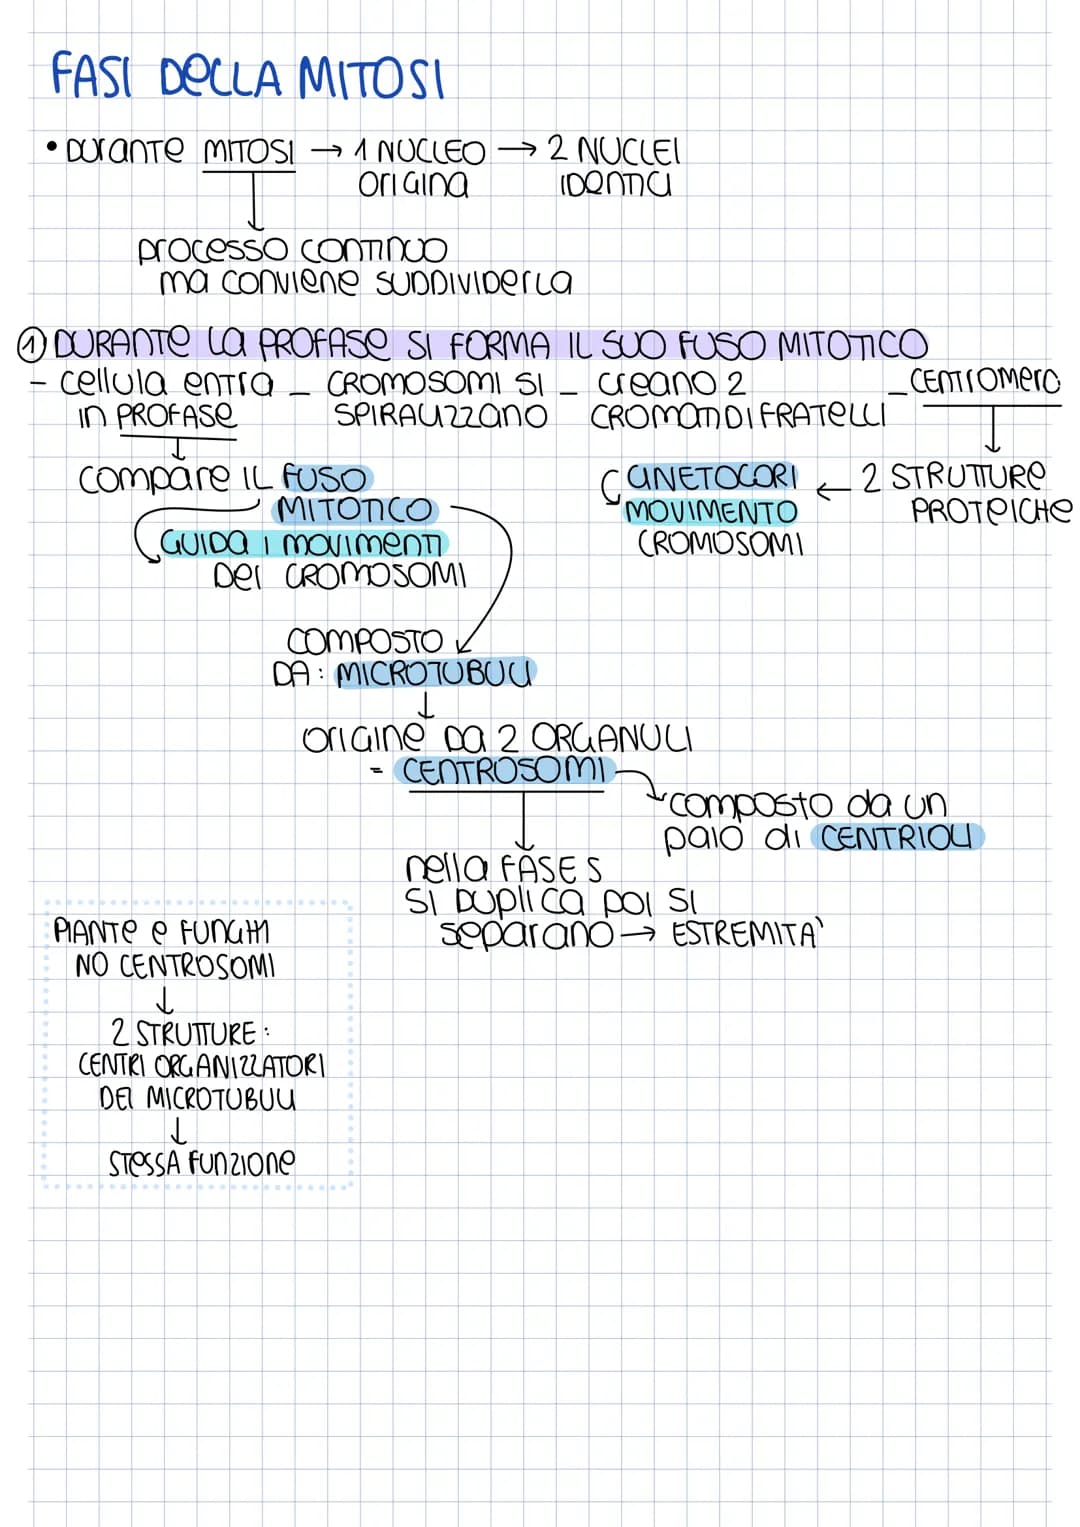 FASI DELLA MITOSI
• DURANTE MITOSI → 1 NUCLEO → 2 NUCLEI
ORIGINA IDENTICI
PROCESSO CONTINUO
MA CONVIENE SUDDIVIDERLA
① DURANTE LA PROFASE SI FORMA IL SUO FUSO MITOTICO
- CELLULA ENTRA - CROMOSOMI SI - CREANO 2 - CENTROMERO
IN PROFASE SPIRALIZZANO CROMATIDI FRATELLI
COMPARE IL FUSO
MITOTICO
GUIDA I MOVIMENTI
DEI CROMOSOMI
CINETOCORI ← 2 STRUTTURE
MOVIMENTO PROTEICHE
CROMOSOMI
COMPOSTO
DA: MICROTUBULI
↓
ORIGINE DA 2 ORGANULI
= CENTROSOMI
COMPOSTO DA UN
PAIO DI CENTRIOLI
NELLA FASE S
SI DUPLICA POI SI
SEPARANO → ESTREMITA'
PIANTE E FUNGHI
NO CENTROSOMI
↓
2 STRUTTURE:
CENTRI ORGANIZZATORI
DEI MICROTUBULI
↓
STESSA FUNZIONE